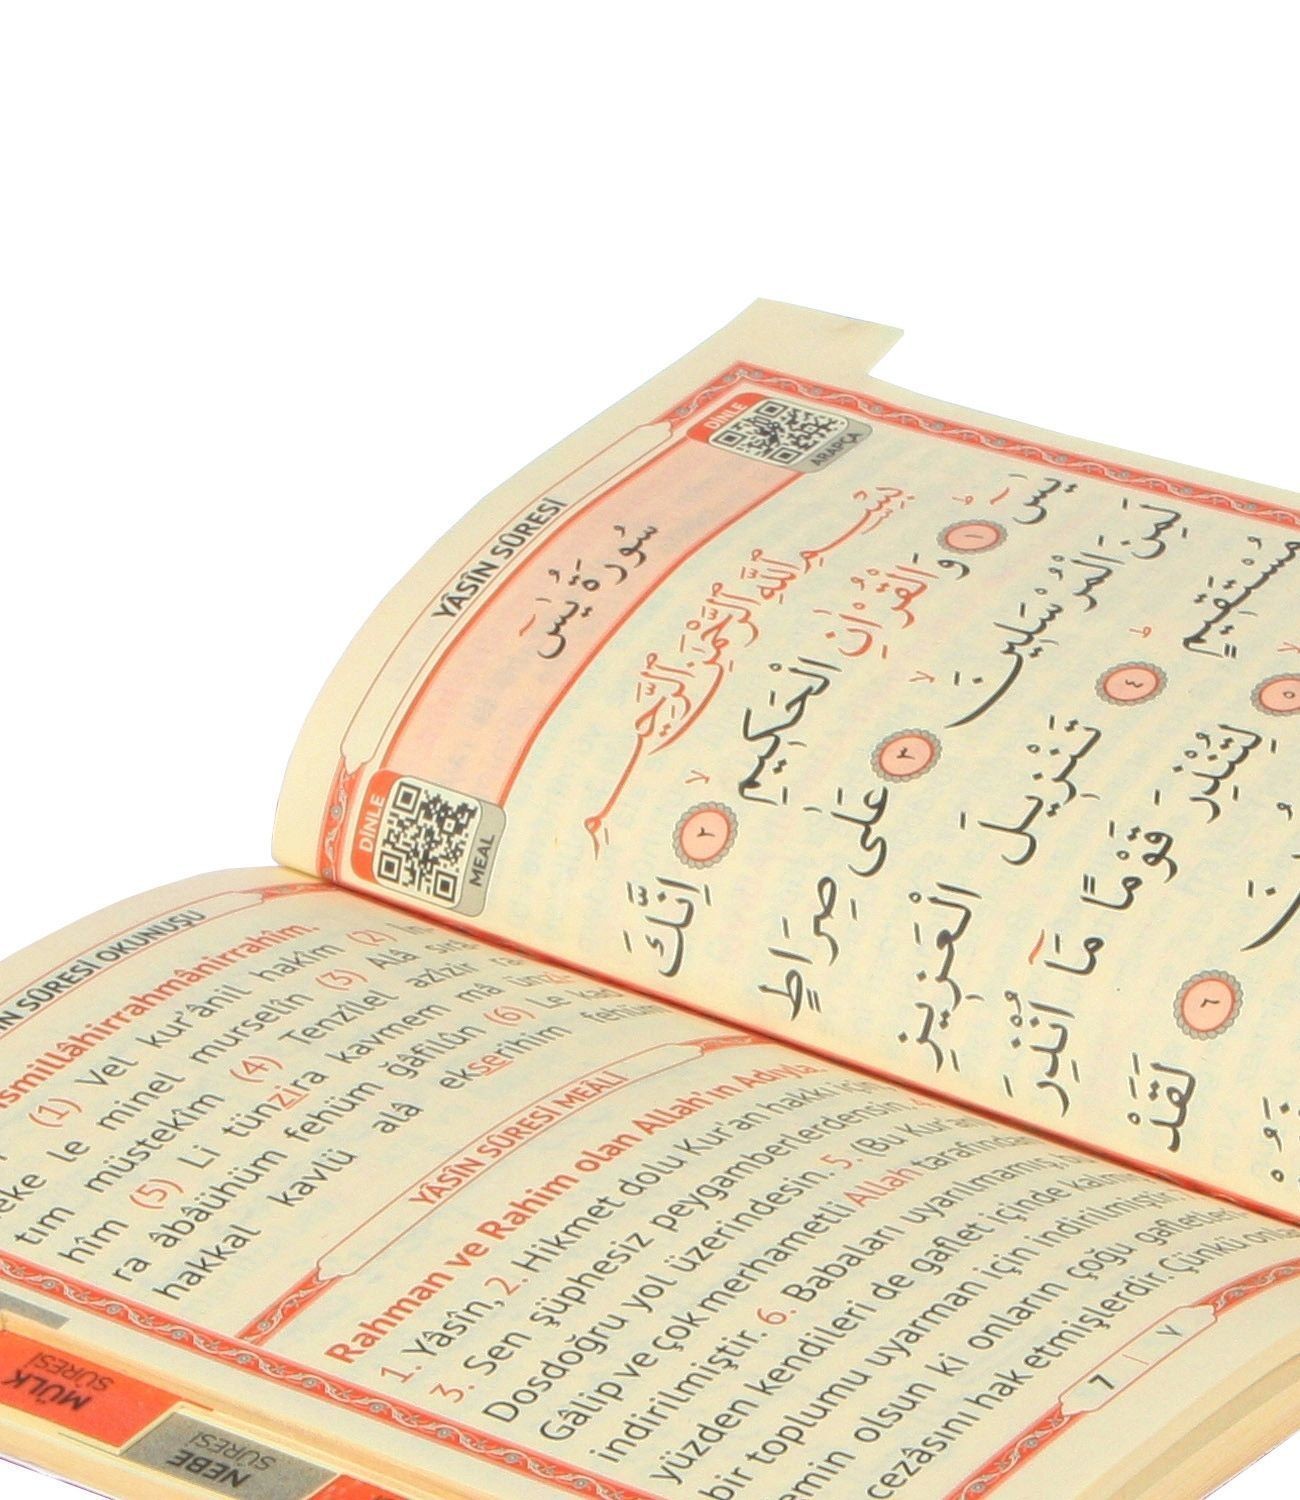 YÂSÎN SÛRESİ
DİNLE
ARAPÇA
سُورَةُ يٰسٓ
DİNLE
MEAL
بِسْــــمِ اللّٰهِ الرَّحْمٰنِ الرَّحِيــــمِ
يٰسٓۜ ﴿١﴾ وَالْقُرْاٰنِ الْحَكِيمِۙ ﴿٢﴾ اِنَّكَ
لَمِنَ الْمُرْسَلِينَۙ ﴿٣﴾ عَلٰى صِرَاطٍ
مُسْتَقِيمٍۜ ﴿٤﴾ تَنْزِيلَ الْعَزِيزِ
﴿٥﴾ لِتُنْذِرَ قَوْمًا مَٓا اُنْذِرَ
﴿٦﴾ لَقَدْ
SÛRESİ OKUNUŞU
smillâhirrahmânirrahîm.
(1) Vel kur'ânil hakîm (2) İn
eke le minel murselîn (3) Alâ sırâ
tim müstekîm (4) Tenzîlel azîzir ra
hîm (5) Li tünzira kavmem mâ ünzi
ra âbâühüm fehüm ğâfilûn (6) Le kad
hakkal kavlü alâ ekserihim fehüm
YÂSÎN SÛRESİ MEÂLİ
Rahman ve Rahim olan Allah'ın Adıyla.
1. Yâsîn, 2. Hikmet dolu Kur'an hakkı için
3. Sen şüphesiz peygamberlerdensin.
Dosdoğru yol üzerindesin. 5. (Bu Kur'an
Gâlip ve çok merhametli Allah tarafından
indirilmiştir. 6. Babaları uyarılmamış,
yüzden kendileri de gaflet içinde
bir toplumu uyarman için indirilmiştir.
emin olsun ki onların çoğu gafletleri
cezâsını hak etmişlerdir. Çünkü
7 | ٧
MÜLK
SÛRESİ
NEBE
SÛRESİ